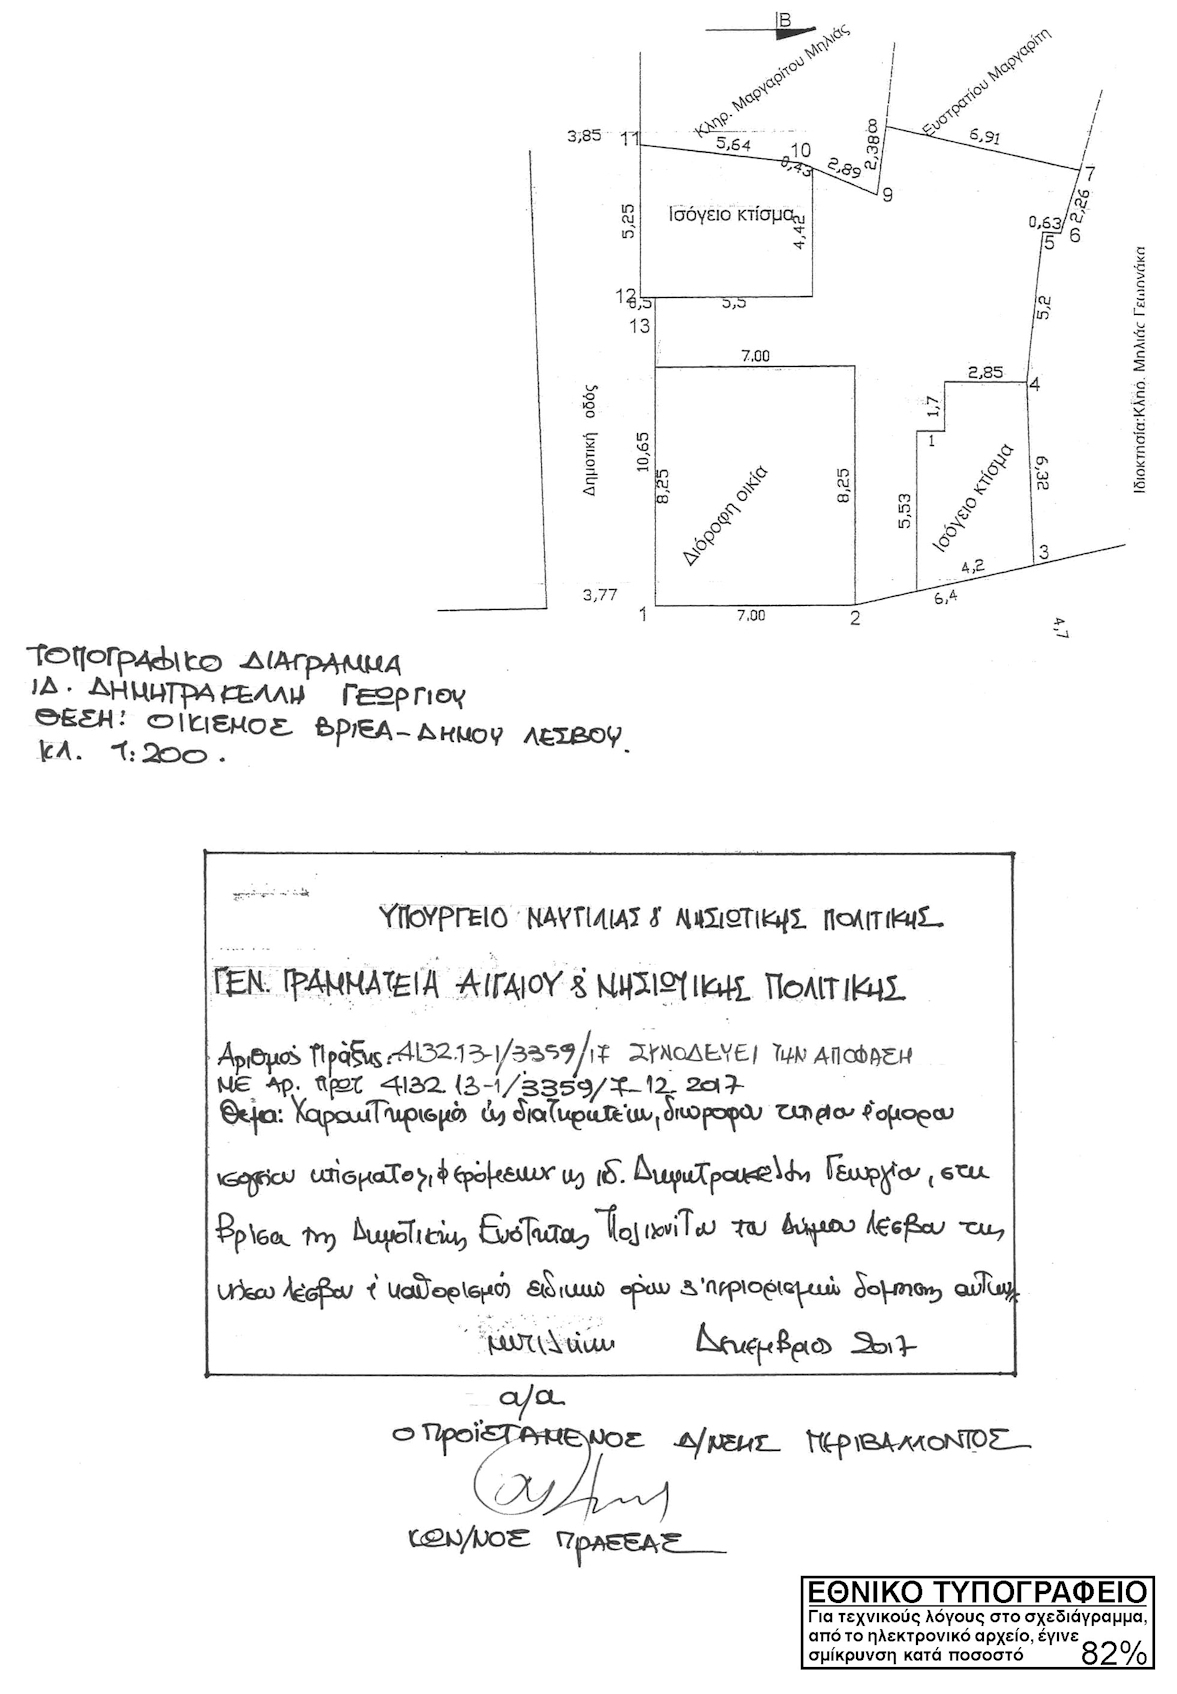 Β
Κληρ. Μαργαρίτου Μηλιάς
Ευστρατίου Μαργαρίτη
3,85
11
5,64
10
0,43
2,89
2,38
8
9
6,91
7
2,26
0,63
5
6
5,25
Ισόγειο κτίσμα
4,42
12
0,5
5,5
13
5,2
7,00
2,85
4
1,7
1
Δημοτική οδός
10,65
8,25
Διόροφη οικία
8,25
5,53
Ισόγειο κτίσμα
6,32
Ιδιοκτησία:Κληρ. Μηλιάς Γεωργνάκα
3
4,2
6,4
3,77
1
7,00
2
4,7
ΤΟΠΟΓΡΑΦΙΚΟ ΔΙΑΓΡΑΜΜΑ
ΙΔ. ΔΗΜΗΤΡΑΚΕΛΛΗ ΓΕΩΡΓΙΟΥ
ΘΕΣΗ: ΟΙΚΙΣΜΟΣ ΒΡΙΣΑ - ΔΗΜΟΥ ΛΕΣΒΟΥ.
ΚΛ. 1:200.
ΥΠΟΥΡΓΕΙΟ ΝΑΥΤΙΛΙΑΣ & ΝΗΣΙΩΤΙΚΗΣ ΠΟΛΙΤΙΚΗΣ
ΓΕΝ. ΓΡΑΜΜΑΤΕΙΑ ΑΙΓΑΙΟΥ & ΝΗΣΙΩΤΙΚΗΣ ΠΟΛΙΤΙΚΗΣ
Αριθμός Πράξης: 4132.13-1/3359/17 ΣΥΝΟΔΕΥΕΙ ΤΗΝ ΑΠΟΦΑΣΗ
ΜΕ ΑΡ. ΠΡΩΤ 4132.13-1/3359/7-12-2017
Θέμα: Χαρακτηρισμός ως διατηρητέων, διώροφου κτιρίου & όμορου
ισογείου κτίσματος, φερόμενων ως ιδ. Δημητρακέλλη Γεωργίου, στη
Βρίσα της Δημοτικής Ενότητας Πολιχνίτου του Δήμου Λέσβου της
νήσου Λέσβου & καθορισμός ειδικών όρων & περιορισμών δόμησης αυτών
Μυτιλήνη Δεκέμβριος 2017
α/α
Ο ΠΡΟΪΣΤΑΜΕΝΟΣ Δ/ΝΣΗΣ ΠΕΡΙΒΑΛΛΟΝΤΟΣ
ΚΩΝ/ΝΟΣ ΠΡΑΣΣΑΣ
ΕΘΝΙΚΟ ΤΥΠΟΓΡΑΦΕΙΟ
Για τεχνικούς λόγους στο σχεδιάγραμμα,
από το ηλεκτρονικό αρχείο, έγινε
σμίκρυνση κατά ποσοστό 82%